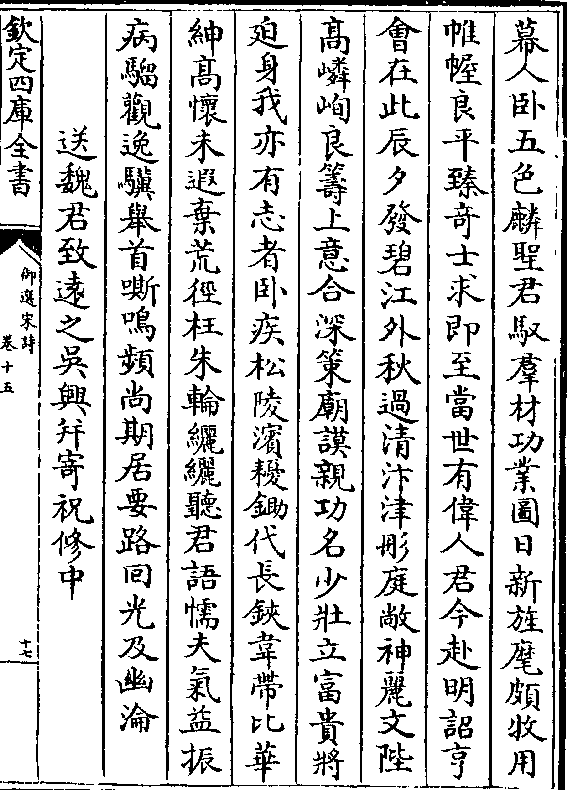 幕人卧五色麟聖君馭羣材功業圖日新旌麾頗牧用
帷幄良平臻竒士求即至當世有偉人君今赴明詔亨
㑹在此辰夕發碧江外秋過清汴津彤庭敞神麗文陛
髙嶙峋良籌上意合深策廟謨親功名少壯立富貴將
廹身我亦有志者卧疾松陵濱耰鋤代長鋏韋帶比華
紳髙懐未遐棄荒徑枉朱輪纚纚聽君語懦夫氣益振
病騮觀逸驥舉首嘶鳴頻尚期居要路囘光及幽淪
送魏君致逺之吳興幷寄祝修中
欽定四庫全書
御選宋詩
卷十五
十七